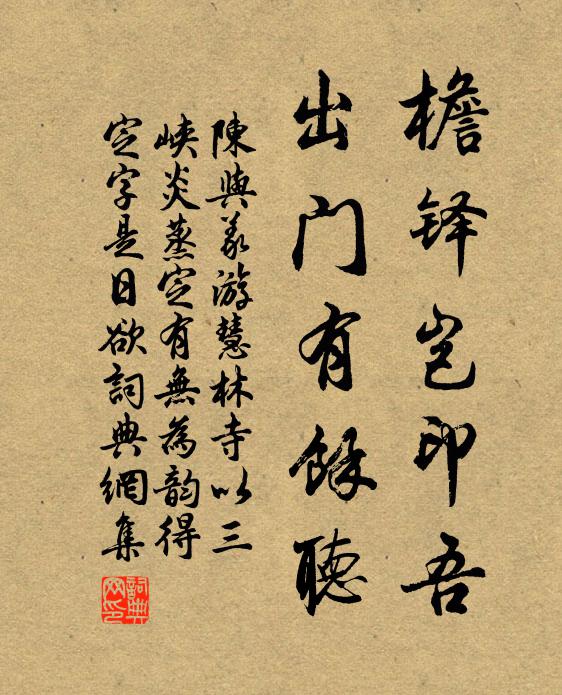 檐铎岂印吾
出门有餘聽
陳與義游慧林寺以三
峽炎蒸定有無為韵得
定字是日欲詞典網集
詞典
网印